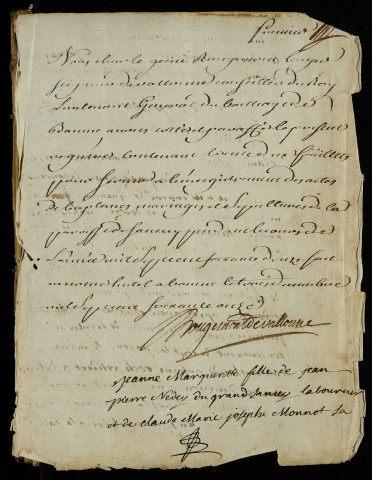 premier
Nous Claude
Seigneur de vallonne conseiller du Roy
Lieutenant General du Bailliage de
Baume avons cotté et paraffé le present
registre contenant feuillets
pour servir a l'enregistrement des actes
de baptemes mariages et sepultures de la
paroisse de Sancey pendant le cours de
L'année mil sept cent soixante douze fait
en notre hotel a Baume le
mil sept cent soixante onze
Rougemont de vallonne
Jeanne Margueritte fille de jean
pierre Nedey du grand Sancey laboureur
et de claude Marie josephe Monnot sa